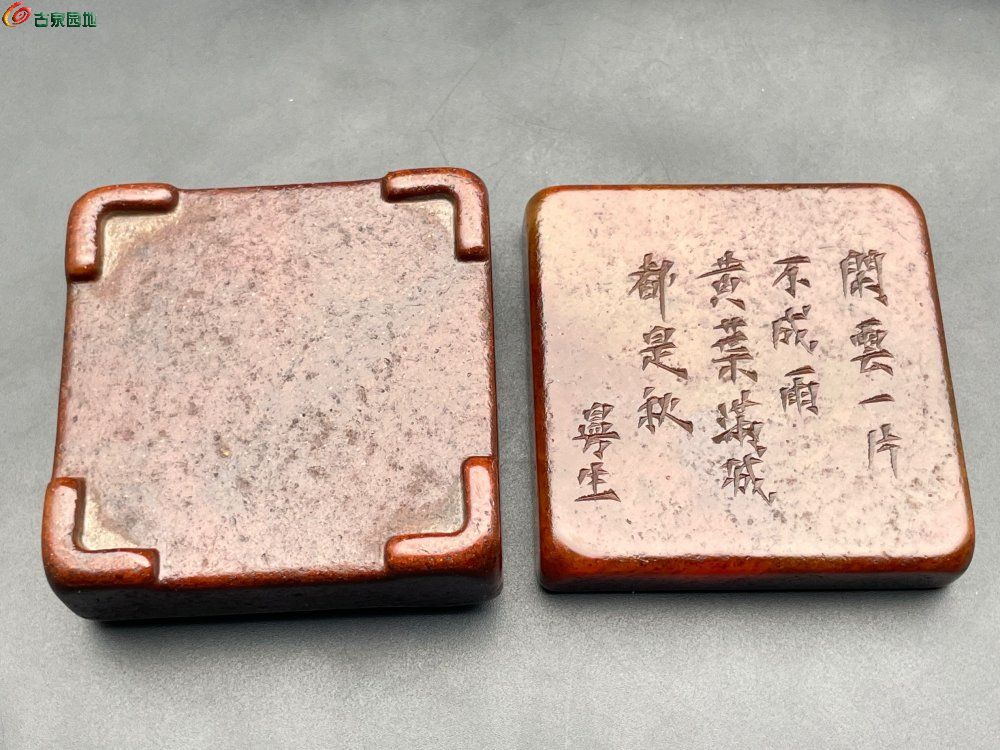 古泉园地
閑雲一片
不成雨
黄葉滿城
都是秋
生